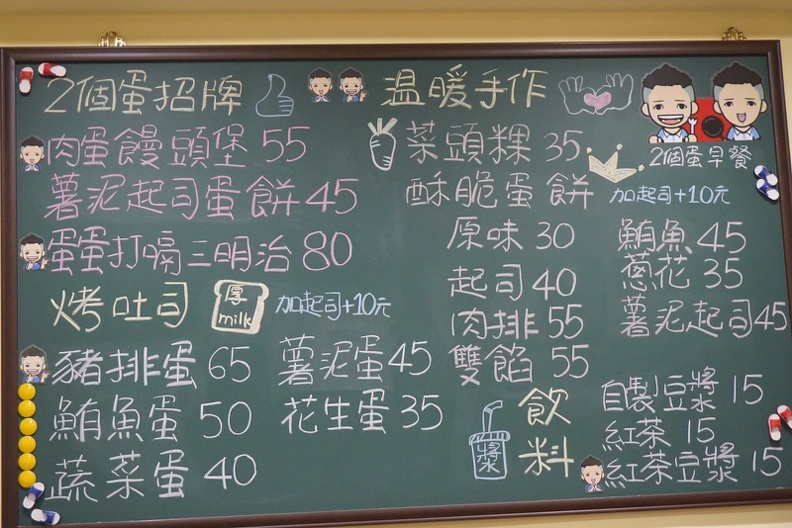 2個蛋招牌
肉蛋饅頭堡 55
薯泥起司蛋餅 45
蛋蛋打嗝三明治 80
烤吐司
厚
milk
加起司+10元
豬排蛋 65
鮪魚蛋 50
蔬菜蛋 40
薯泥蛋 45
花生蛋 35
溫暖手作
菜頭粿 35
酥脆蛋餅
加起司+10元
原味 30
起司 40
肉排 55
雙餡 55
鮪魚 45
蔥花 35
薯泥起司 45
飲料
漿
自製豆漿 15
紅茶 15
紅茶豆漿 15
2個蛋早餐